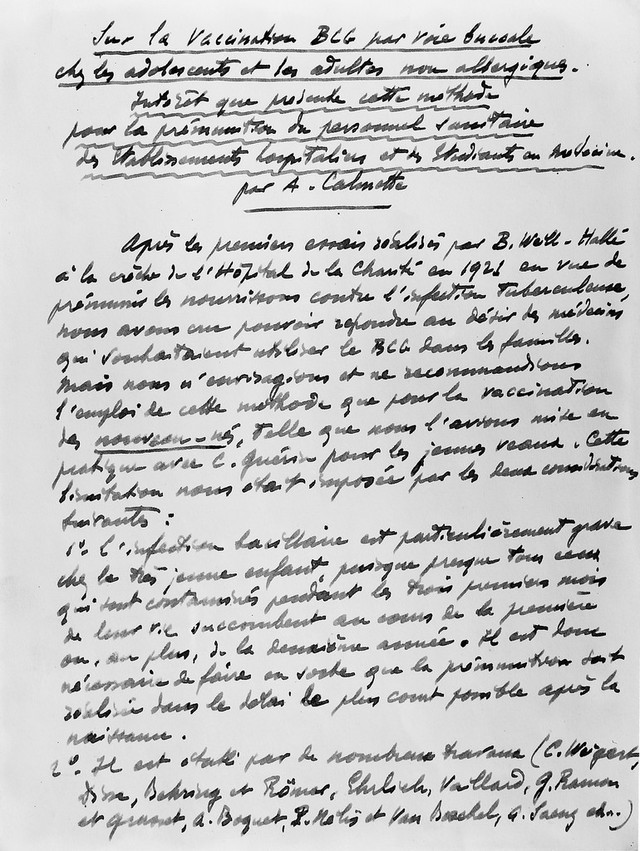 Sur la Vaccination BCG par voie buccale
chez les adolescents et les adultes non allergiques.
Intérêt que présente cette méthode
pour la prémunition du personnel sanitaire
des Etablissements hospitaliers et des Etudiants en Médecine.
par A. Calmette
Après les premiers essais réalisés par B. Weill-Hallé
à la crèche de l'Hôpital de la Charité en 1921 en vue de
prémunir les nourrissons contre l'infection tuberculeuse,
nous avons cru pouvoir répondre au désir des médecins
qui souhaitaient utiliser le BCG dans les familles.
Mais nous n'envisagions et ne recommandions
l'emploi de cette méthode que pour la vaccination
des nouveau-nés, telle que nous l'avions mise en
pratique avec C. Guérin pour les jeunes veaux. Cette
limitation nous était imposée par les deux considérations
suivantes :
1° L'infection bacillaire est particulièrement grave
chez le très jeune enfant puisque presque tous ceux
qui sont contaminés pendant les trois premiers mois
de leur vie succombent au cours de la première
ou, au plus, de la deuxième année. Il est donc
nécessaire de faire en sorte que la prémunition soit
réalisée dans le délai le plus court possible après la
naissance.
2° Il est établi par de nombreux travaux (C. Weigert,
Disse, Behring et Römer, Ehrlich, Vaillard, G. Ramon
et Grasset, A. Boquet, P. Nélis et Van Boeckel, A. Saenz etc..)